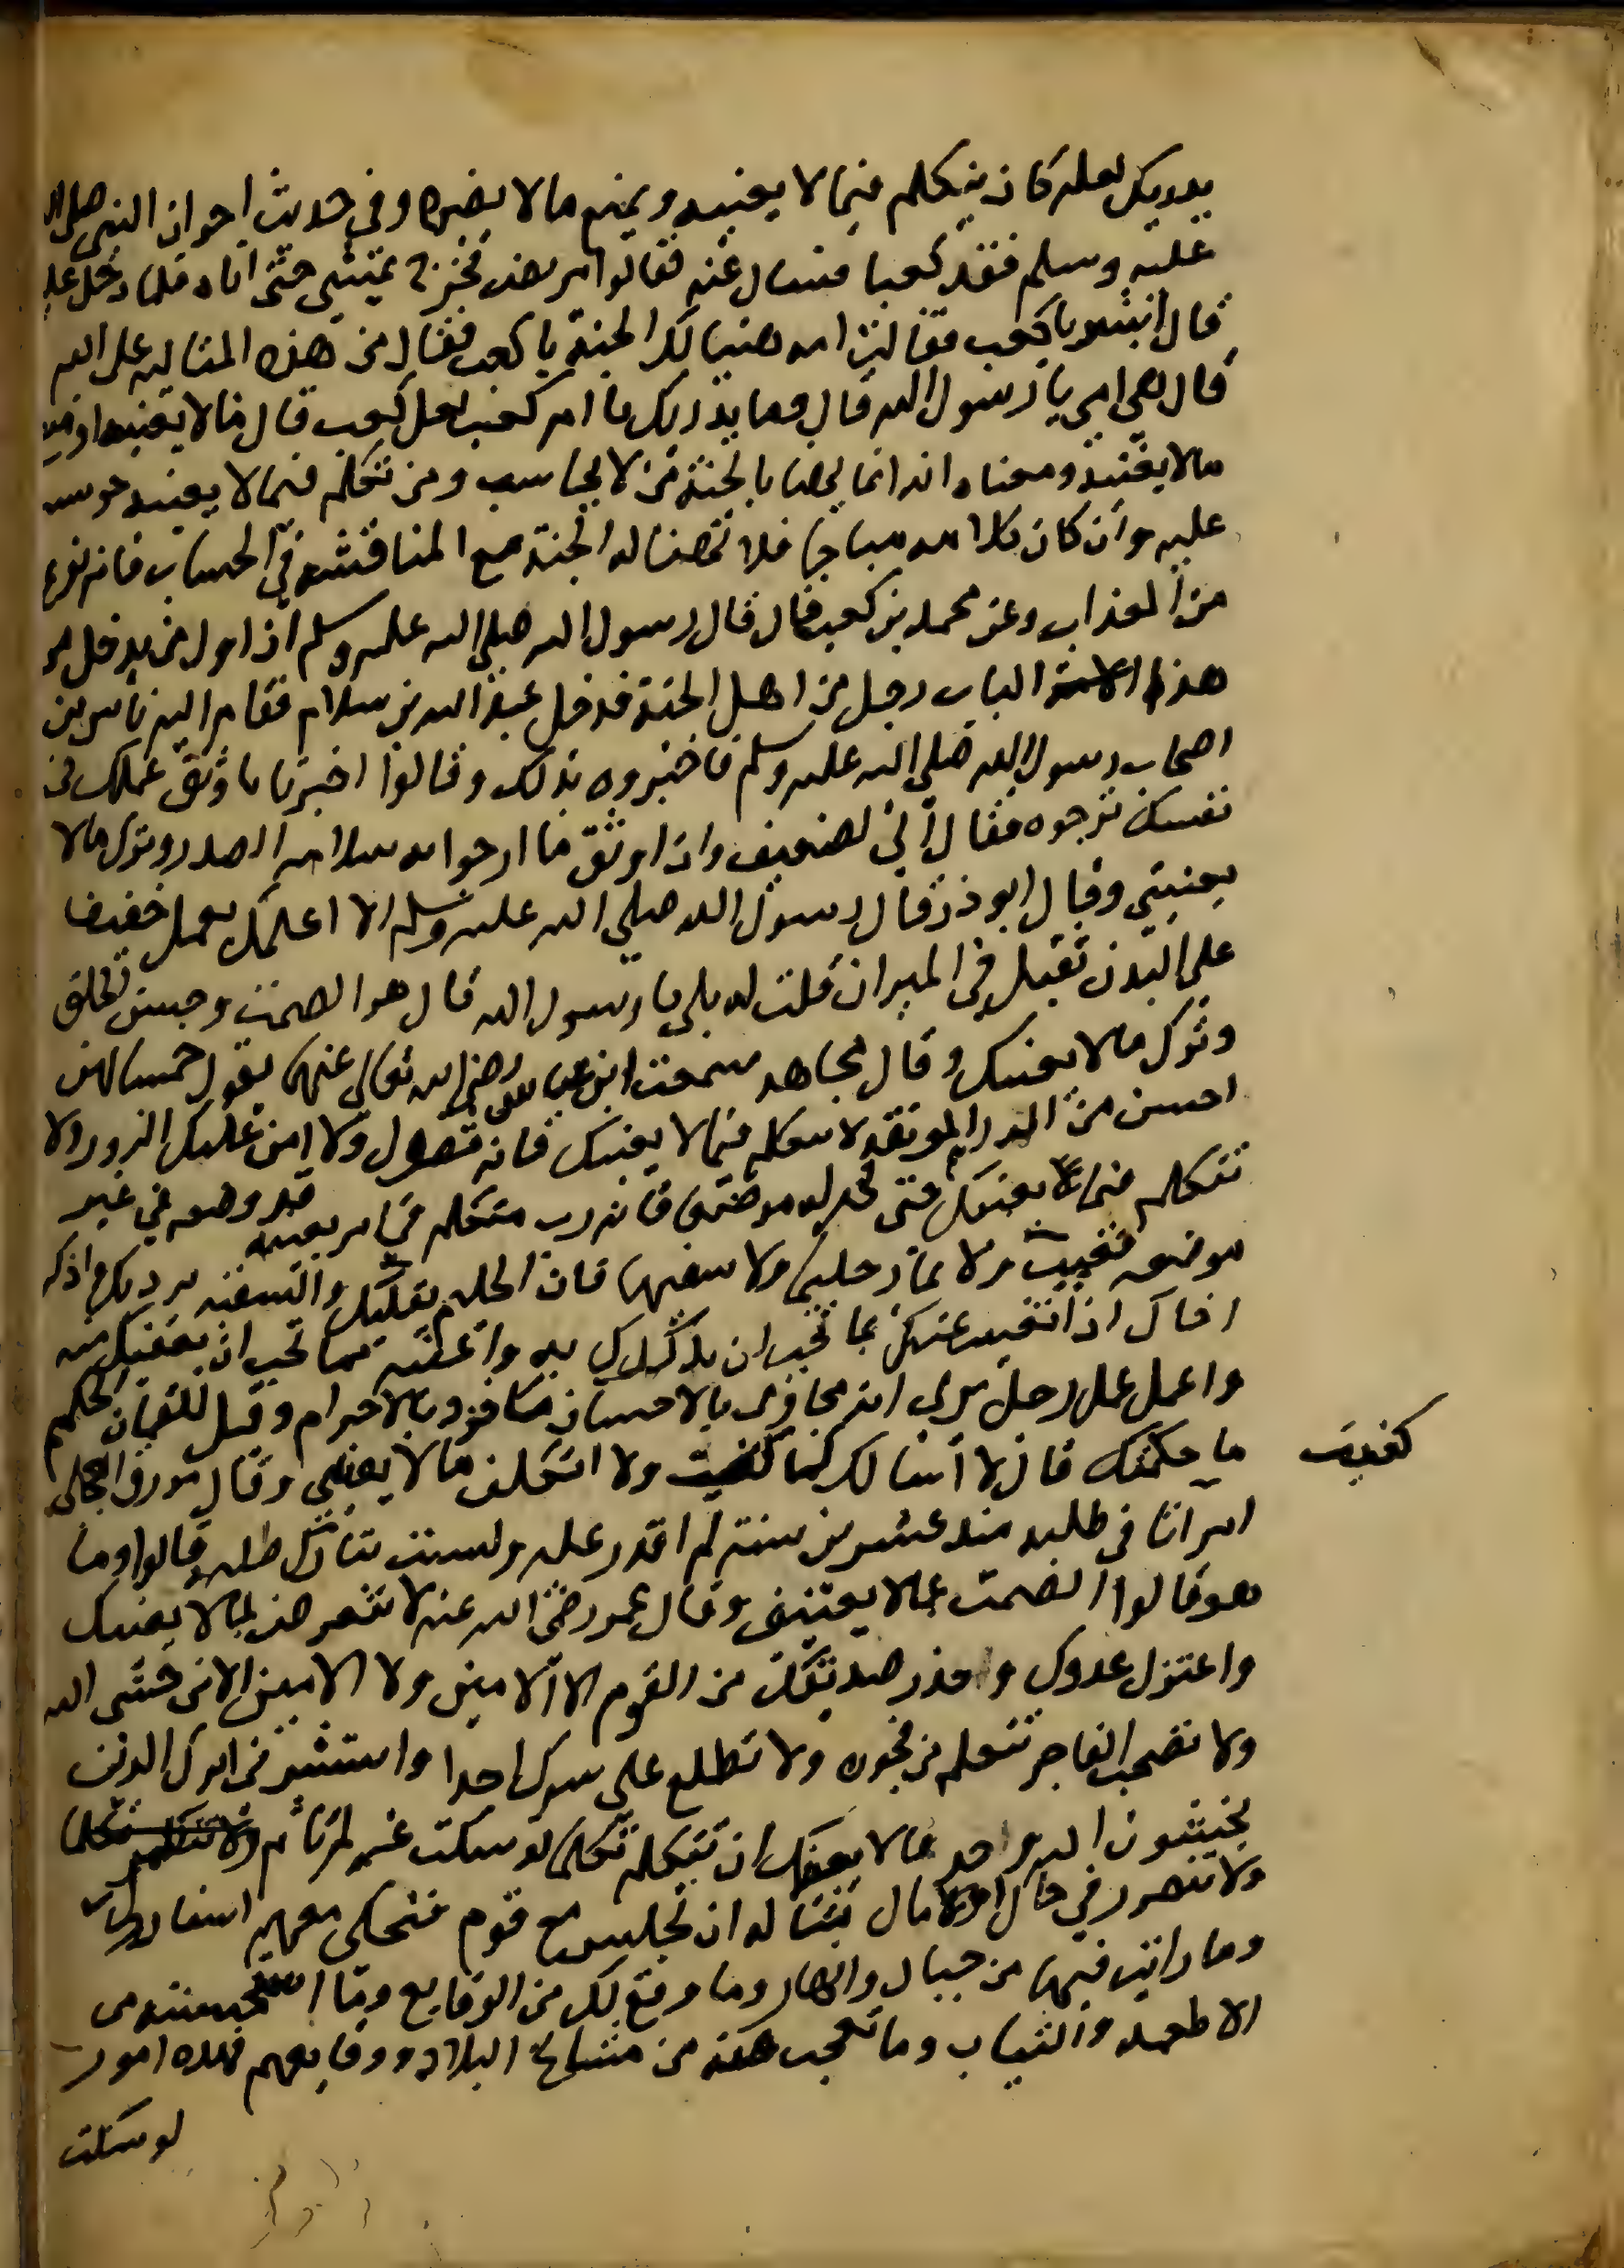 يدريك لعله كان يتكلم فيما لا يعنيه ويمنع ما لا يضره وفي حديث اخر ان النبي صلى الله
عليه وسلم فقد كعبا فسال عنه فقالوا مريض فخرج يمشي حتى اتاه فلما دخل عليه
قال ابشر يا كعب فقالت امه هنيا لك الجنة يا كعب فقال من هذه المتاليه على الله
قال هي امي يا رسول الله قال وما يدريك يا ام كعب لعل كعب قال ما لا يعنيه او منع
ما لا يغنيه ومعناه انه انما يهنا بالجنة من لا يحاسب ومن تكلم فيما لا يعنيه حوسب
عليه وان كان كلامه مباحا فلا تهنا له الجنة مع المناقشه في الحساب فانه نوع
من العذاب وعن محمد بن كعب قال قال رسول الله صلى الله عليه وسلم ان اول من يدخل من
هذا الباب رجل من اهل الجنة فدخل عبد الله بن سلام فقام اليه ناس من
اصحاب رسول الله صلى الله عليه وسلم فاخبروه بذلك وقالوا اخبرنا باوثق عملك في
نفسك ترجوه فقال اني لضعيف وان اوثق ما ارجوا به سلامه الصدر وترك ما لا
يعنيني وقال ابو ذر قال رسول الله صلى الله عليه وسلم الا اعلمك بعمل خفيف
على البدن ثقيل في الميزان قلت له بلى يا رسول الله قال هو الصمت وحسن الخلق
وترك ما لا يعنيك وقال مجاهد سمعت ابن عباس رضي الله تعالى عنهما يقول خمس لهن
احسن من الدرهم الموقفه لا تتكلم فيما لا يعنيك فانه فضول ولا امن عليك الزور ولا
تتكلم فيما يعنيك حتى تجد له موضعا فانه رب متكلم في امر يعنيه قد وضعه في غير
موضعه فعيب ولا تمار حليما ولا سفيها فان الحليم يقليك والسفيه يرديك واذكر
اخاك اذا تغيب عنك بما تحب ان يذكرك به واعفه مما تحب ان يعفيك منه
واعمل عمل رجل يرى انه مجازى بالاحسان ماخوذ بالاجرام وقيل للقمان الحكيم
ما حكمتك قال لا اسال كما كفيت ولا اتكلف ما لا يعنيني وقال مورق العجلي
كفيت
امر انا في طلبه منذ عشرين سنة لم اقدر عليه ولست بتارك طلبه قالوا وما
هو قالوا الصمت عما لا يعنيني وقال عمر رضي الله عنه لا تتعرض لما لا يعنيك
واعتزل عدوك واحذر صديقك من القوم الا الامين ولا الامين الا من خشى الله
ولا تصحب الفاجر تتعلم من فجوره ولا تطلع على سرك احدا واستشر في امرك الذين
يخشون الله وحد ما لا يعنيك ان تتكلم تكلما لو سكت عنه لم تاثم
ولا تتضرر في حال او مال مثاله ان تجلس مع قوم فتحكى معهم اسفارك
وما رايت فيها من جبال وانهار وما وقع لك من الوقايع وما استحسنته من
الاطعمه والثياب وما تعجب منه من مشايخ البلاد ووقايعهم فهذه امور
لو سكت